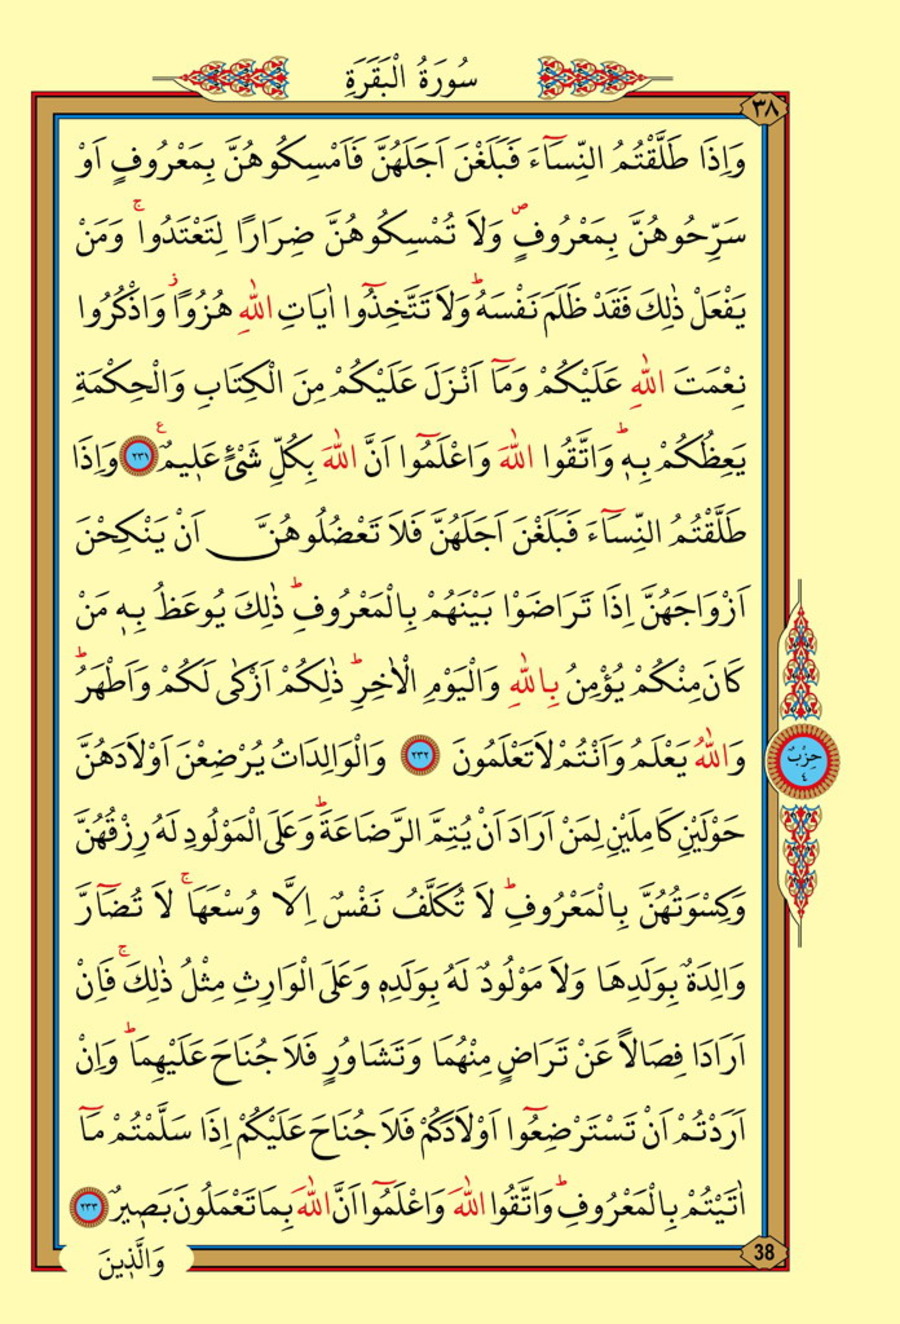 سُورَةُ الْبَقَرَةِ
٣٨
وَاِذَا طَلَّقْتُمُ النِّسَٓاءَ فَبَلَغْنَ اَجَلَهُنَّ فَاَمْسِكُوهُنَّ بِمَعْرُوفٍ اَوْ
سَرِّحُوهُنَّ بِمَعْرُوفٍۖ وَلَا تُمْسِكُوهُنَّ ضِرَارًا لِتَعْتَدُواۚ وَمَنْ
يَفْعَلْ ذٰلِكَ فَقَدْ ظَلَمَ نَفْسَهُۜ وَلَا تَتَّخِذُٓوا اٰيَاتِ اللّٰهِ هُزُوًاۘ وَاذْكُرُوا
نِعْمَتَ اللّٰهِ عَلَيْكُمْ وَمَٓا اَنْزَلَ عَلَيْكُمْ مِنَ الْكِتَابِ وَالْحِكْمَةِ
يَعِظُكُمْ بِهٖۜ وَاتَّقُوا اللّٰهَ وَاعْلَمُٓوا اَنَّ اللّٰهَ بِكُلِّ شَيْءٍ عَلٖيمٌ ع ٢٣١ وَاِذَا
طَلَّقْتُمُ النِّسَٓاءَ فَبَلَغْنَ اَجَلَهُنَّ فَلَا تَعْضُلُوهُنَّ اَنْ يَنْكِحْنَ
اَزْوَاجَهُنَّ اِذَا تَرَاضَوْا بَيْنَهُمْ بِالْمَعْرُوفِۜ ذٰلِكَ يُوعَظُ بِهٖ مَنْ
كَانَ مِنْكُمْ يُؤْمِنُ بِاللّٰهِ وَالْيَوْمِ الْاٰخِرِۜ ذٰلِكُمْ اَزْكٰى لَكُمْ وَاَطْهَرُۜ
وَاللّٰهُ يَعْلَمُ وَاَنْتُمْ لَا تَعْلَمُونَ ٢٣٢ وَالْوَالِدَاتُ يُرْضِعْنَ اَوْلَادَهُنَّ
حِزْبٌ
٤
حَوْلَيْنِ كَامِلَيْنِ لِمَنْ اَرَادَ اَنْ يُتِمَّ الرَّضَاعَةَۜ وَعَلَى الْمَوْلُودِ لَهُ رِزْقُهُنَّ
وَكِسْوَتُهُنَّ بِالْمَعْرُوفِۜ لَا تُكَلَّفُ نَفْسٌ اِلَّا وُسْعَهَاۚ لَا تُضَٓارَّ
وَالِدَةٌ بِوَلَدِهَا وَلَا مَوْلُودٌ لَهُ بِوَلَدِهٖ وَعَلَى الْوَارِثِ مِثْلُ ذٰلِكَۚ فَاِنْ
اَرَادَا فِصَالاً عَنْ تَرَاضٍ مِنْهُمَا وَتَشَاوُرٍ فَلَا جُنَاحَ عَلَيْهِمَاۜ وَاِنْ
اَرَدْتُمْ اَنْ تَسْتَرْضِعُٓوا اَوْلَادَكُمْ فَلَا جُنَاحَ عَلَيْكُمْ اِذَا سَلَّمْتُمْ مَٓا
اٰتَيْتُمْ بِالْمَعْرُوفِۜ وَاتَّقُوا اللّٰهَ وَاعْلَمُٓوا اَنَّ اللّٰهَ بِمَا تَعْمَلُونَ بَصٖيرٌ ٢٣٣
38
وَالَّذٖينَ